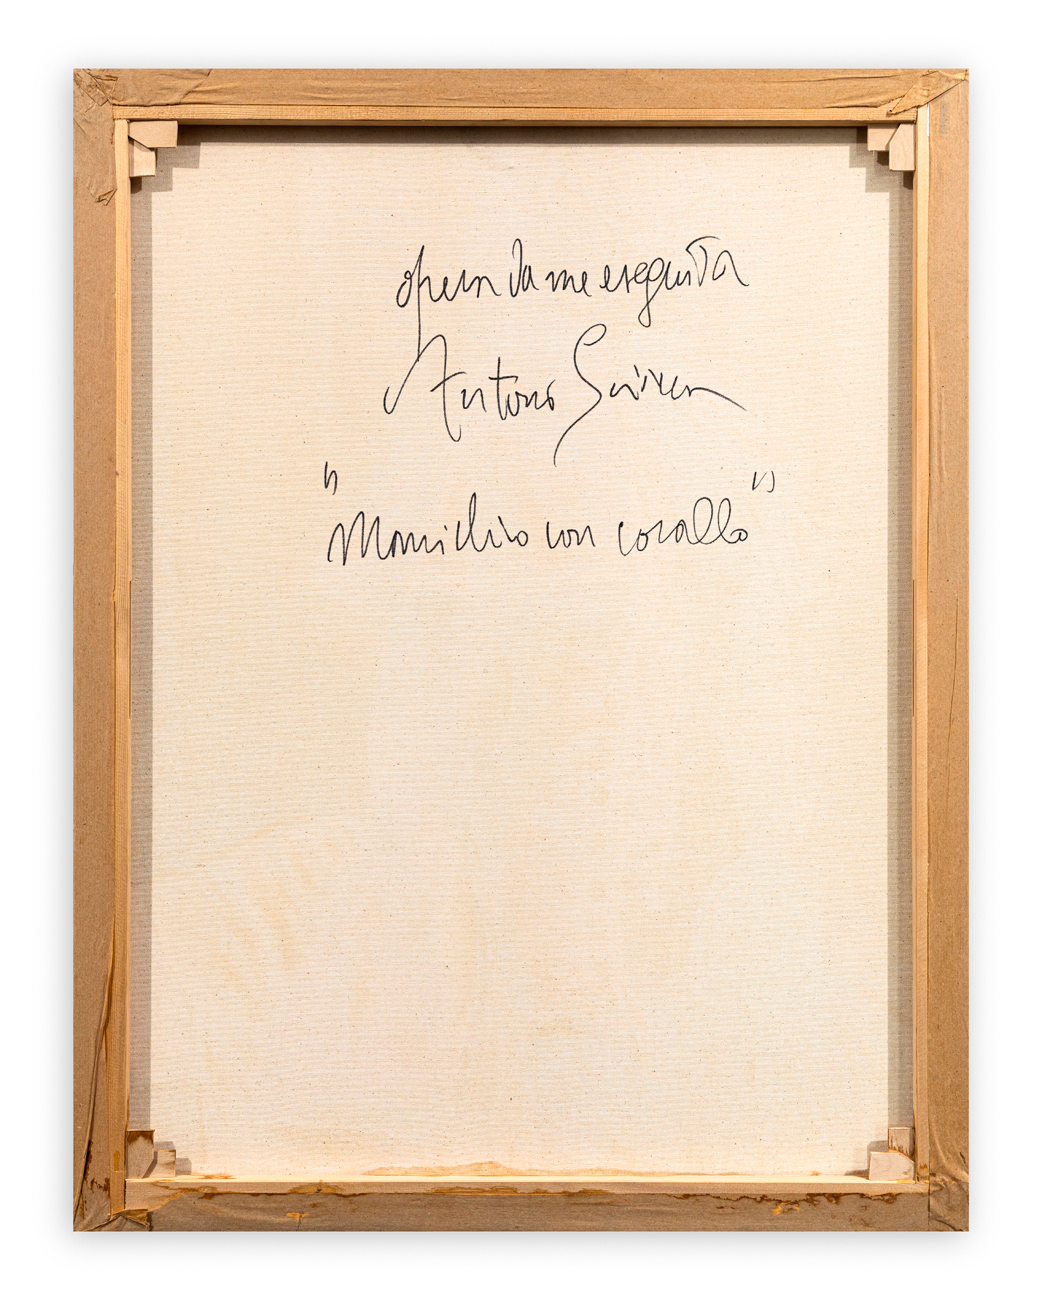 opera da me eseguita
Antonio
"Manichino con corallo"